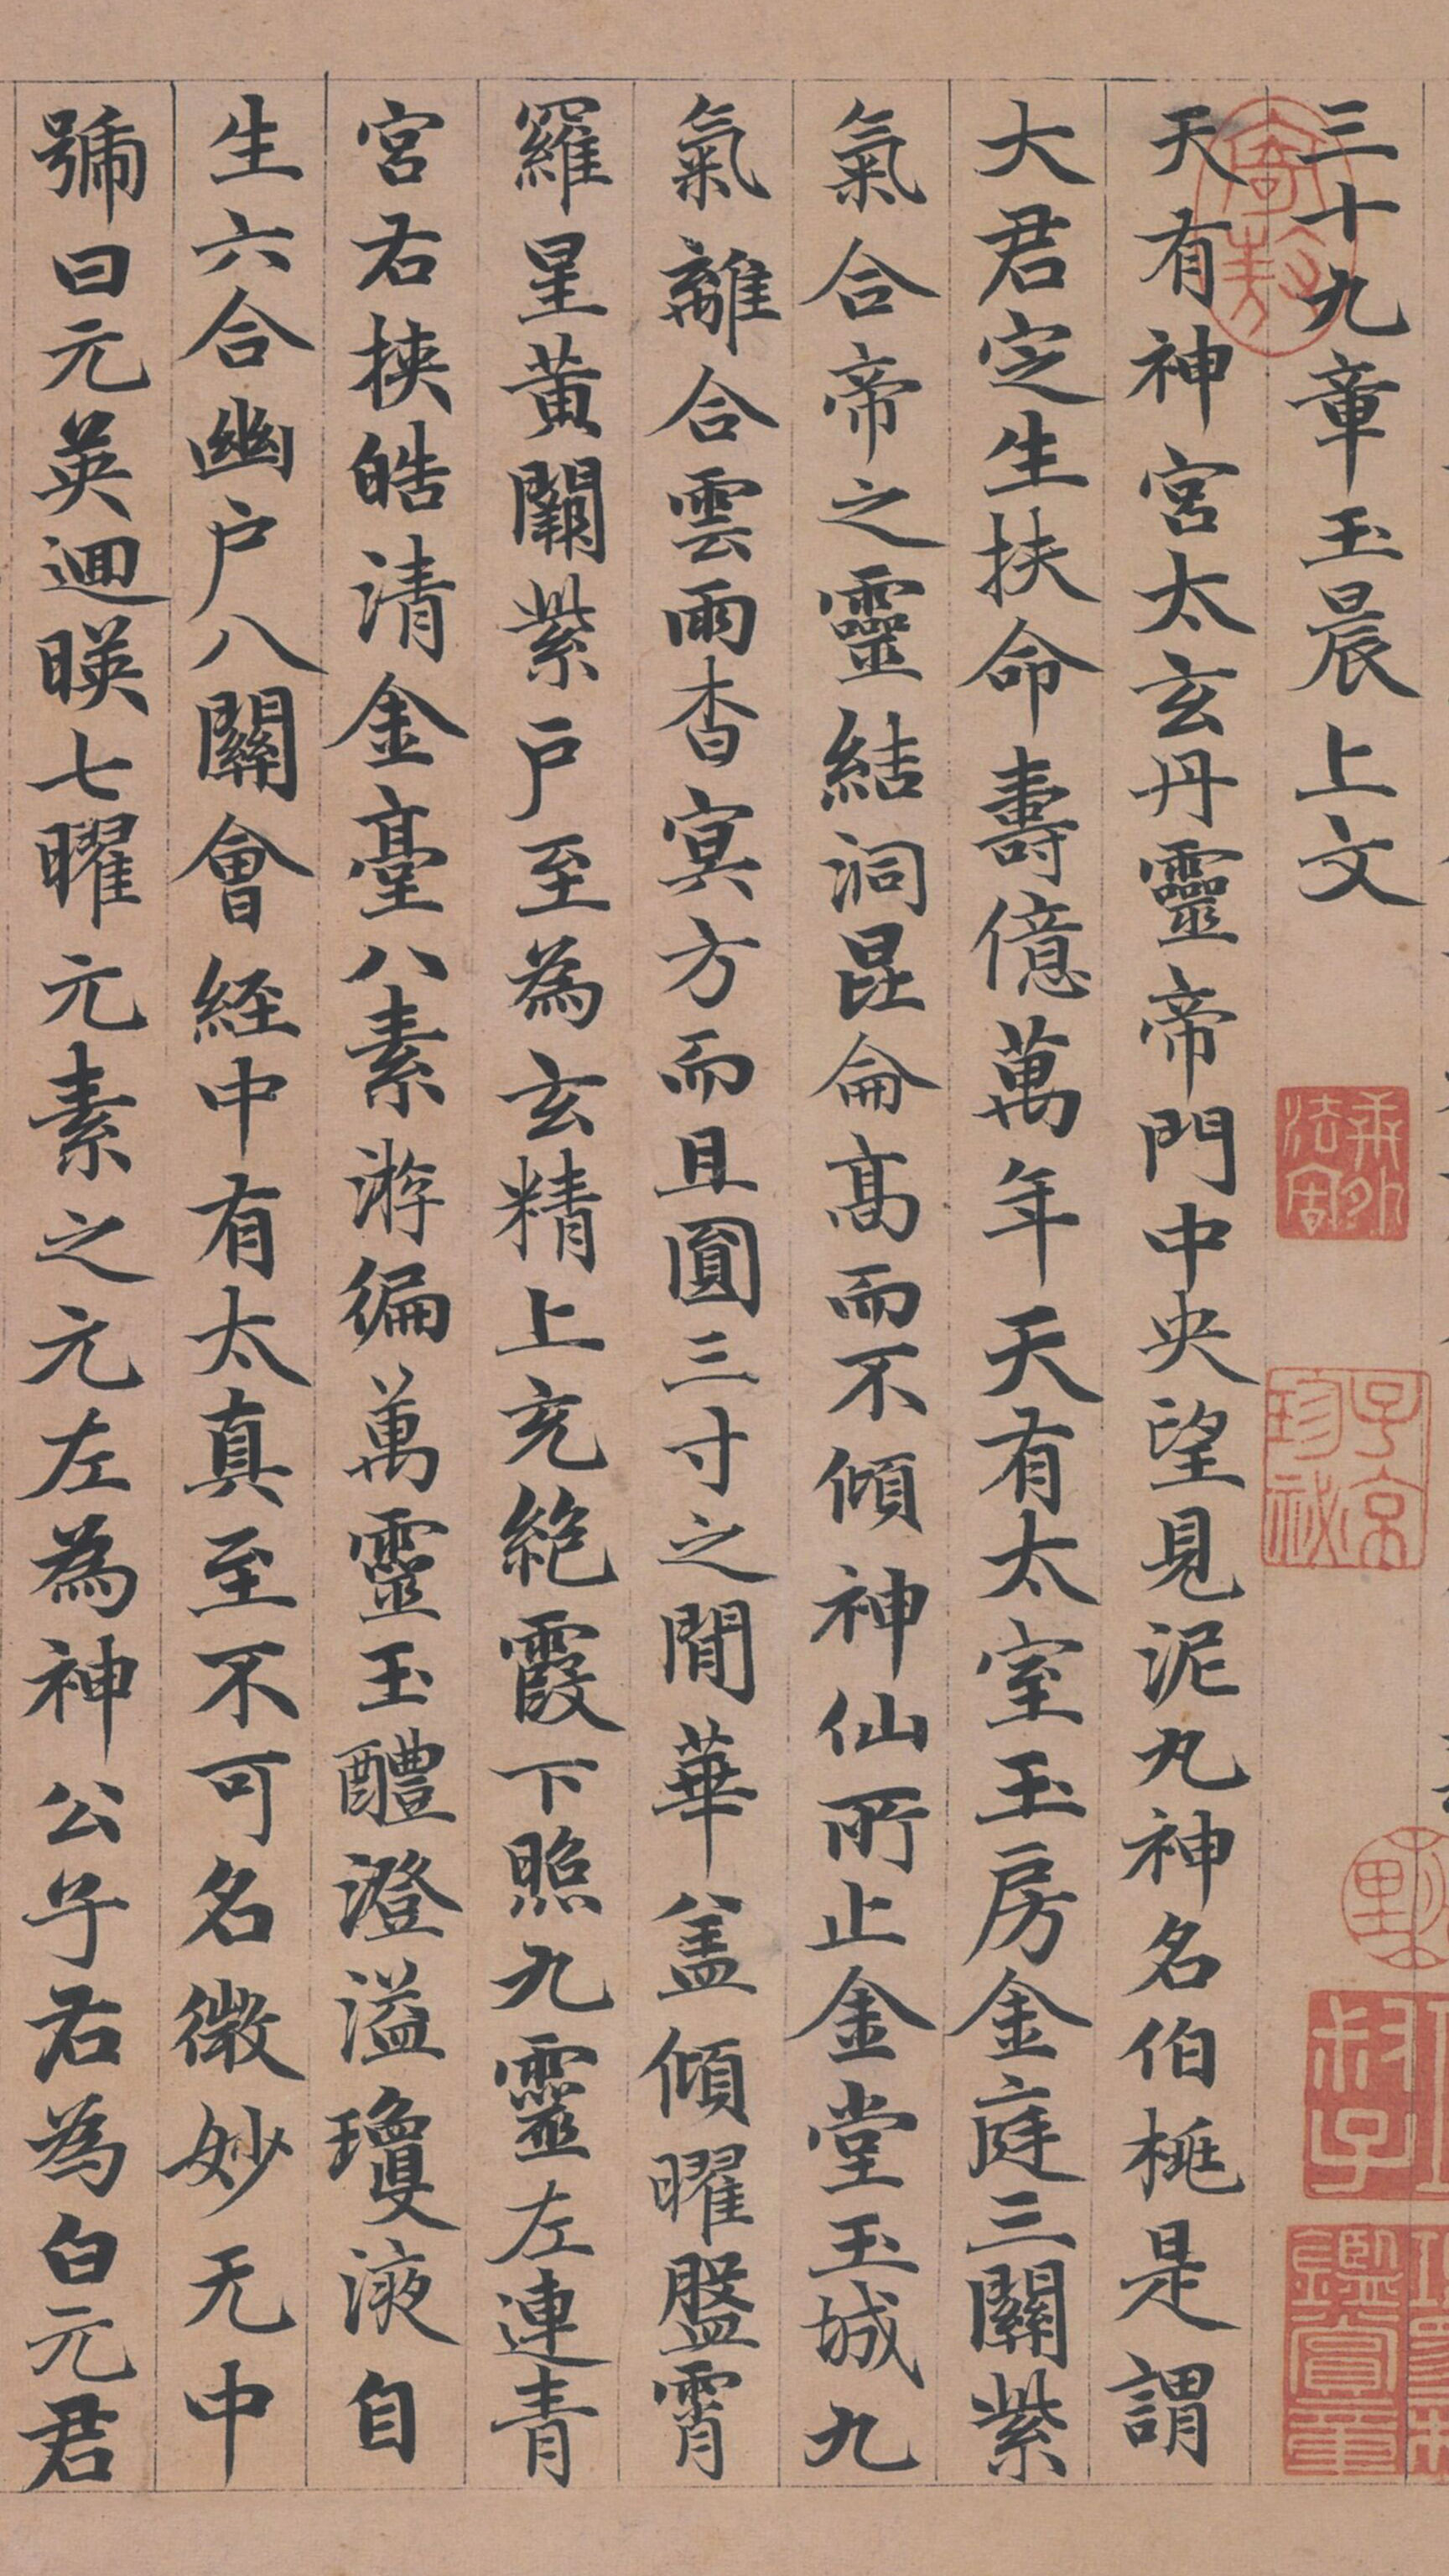 三十九章玉晨上文
天有神宮太玄丹靈帝門中央望見泥丸神名伯桃是謂
大君定生扶命壽億萬年天有太室玉房金庭三關紫
氣合帝之靈結洞昆侖高而不傾神仙所止金堂玉城九
氣離合雲雨杳冥方而且圓三寸之間華蓋傾曜盤霄
羅星黃闕紫戶至為玄精上充絶霞下照九靈左連青
宮右挾皓清金臺八素游徧萬靈玉醴澄溢瓊液自
生六合幽户八關會經中有太真至不可名微妙无中
號曰元英迴暎七曜元素之元左為神公子右為白元君
子京
珍祕
叔子
鑑賞章